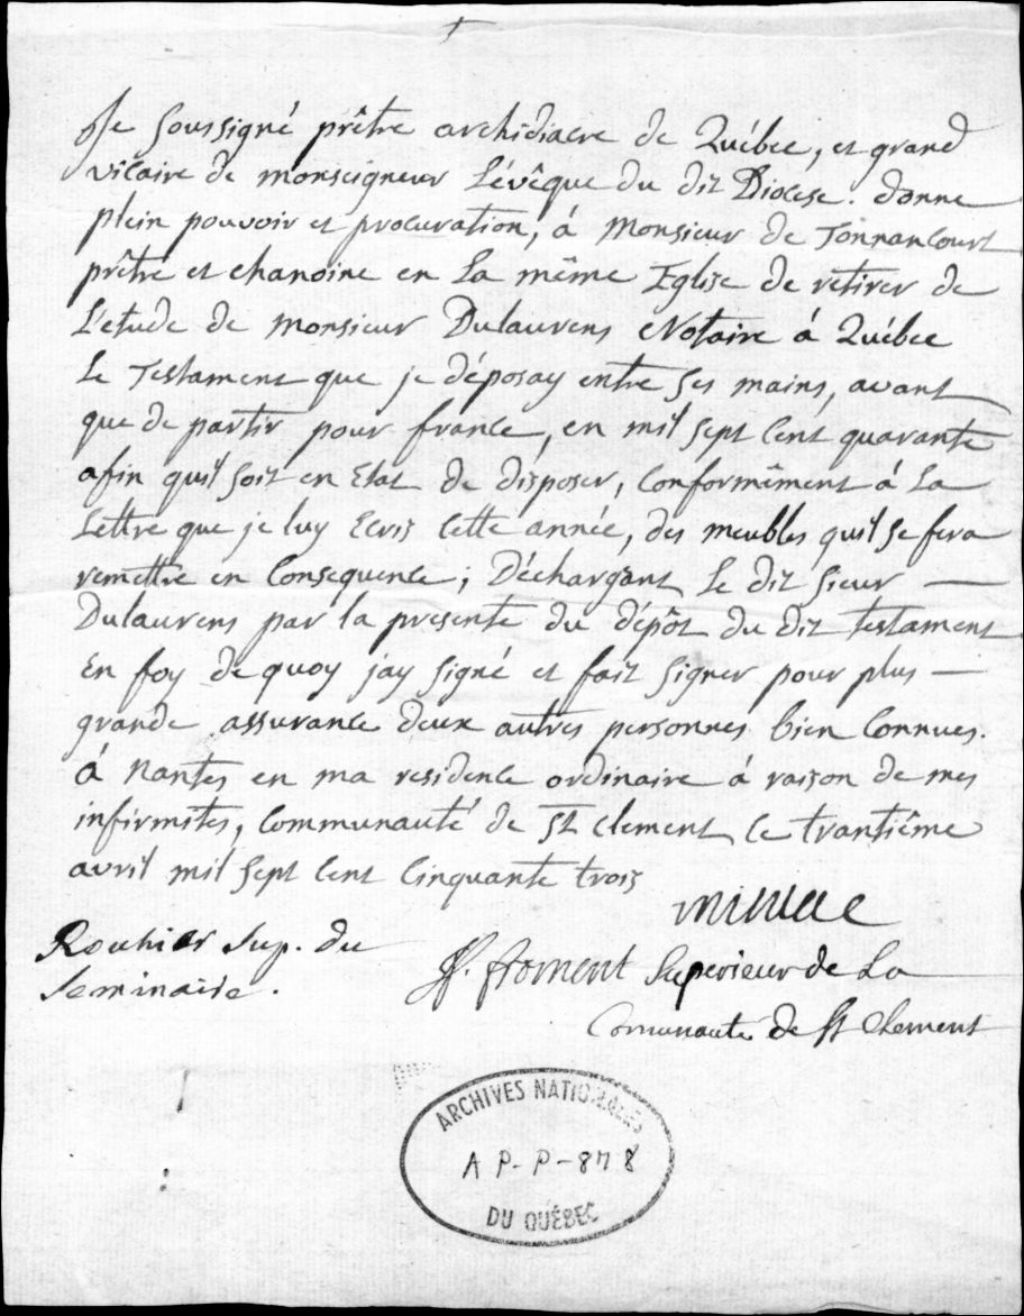 Je soussigné prêtre archidiacre de Québec, et grand
vicaire de monseigneur Lévêque du dit Diocese. donne
plein pouvoir et procuration, à Monsieur de Tonnancourt
prêtre et chanoine en La même Eglise de retirer de
L'etude de Monsieur Dulaurens Notaire à Québec
Le Testament que je déposay entre ses mains, avant
que de partir pour france, en mil sept cent quarante
afin quil soit en Etat de disposer, Conformêment à La
Lettre que je luy Ecris cette année, des meubles quil se fera
remettre en Consequence ; Déchargeant Le dit Sieur —
Dulaurens par la presente du dépôt du dit testament
En foy de quoy jay signé et fait signer pour plus —
grande assurance deux autres personnes bien Connues.
à Nantes en ma residence ordinaire à raison de mes
infirmités, Communauté de St Clement ce trantiême
avril mil sept cent Cinquante trois
Miniac
Rouhier Sup. du
Seminaire.
ff. fforment Superieur de La
Comunauté de St Clement
ARCHIVES NATIONALES
A P - P - 87 8
DU QUÉBEC